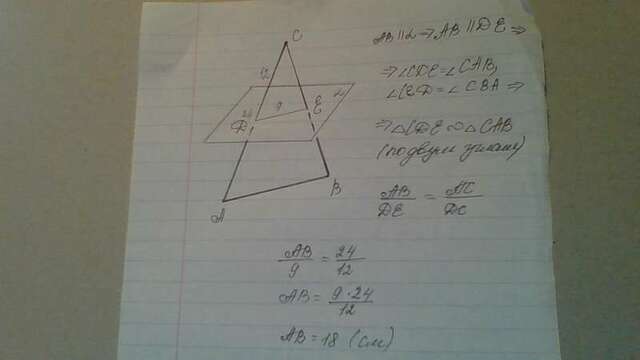 C
12
α
9
E
D
B
A
AB || α ⇒ AB || DE ⇒
⇒ ∠CDE = ∠CAB,
∠CED = ∠CBA ⇒
⇒ △CDE ∞ △CAB
(по двум углам)
AB/DE = AC/DC
AB/9 = 24/12
AB = 9·24/12
AB = 18 (см)